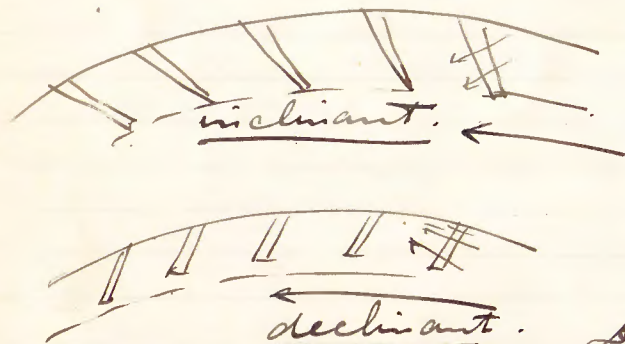 inclinant.
declinant.